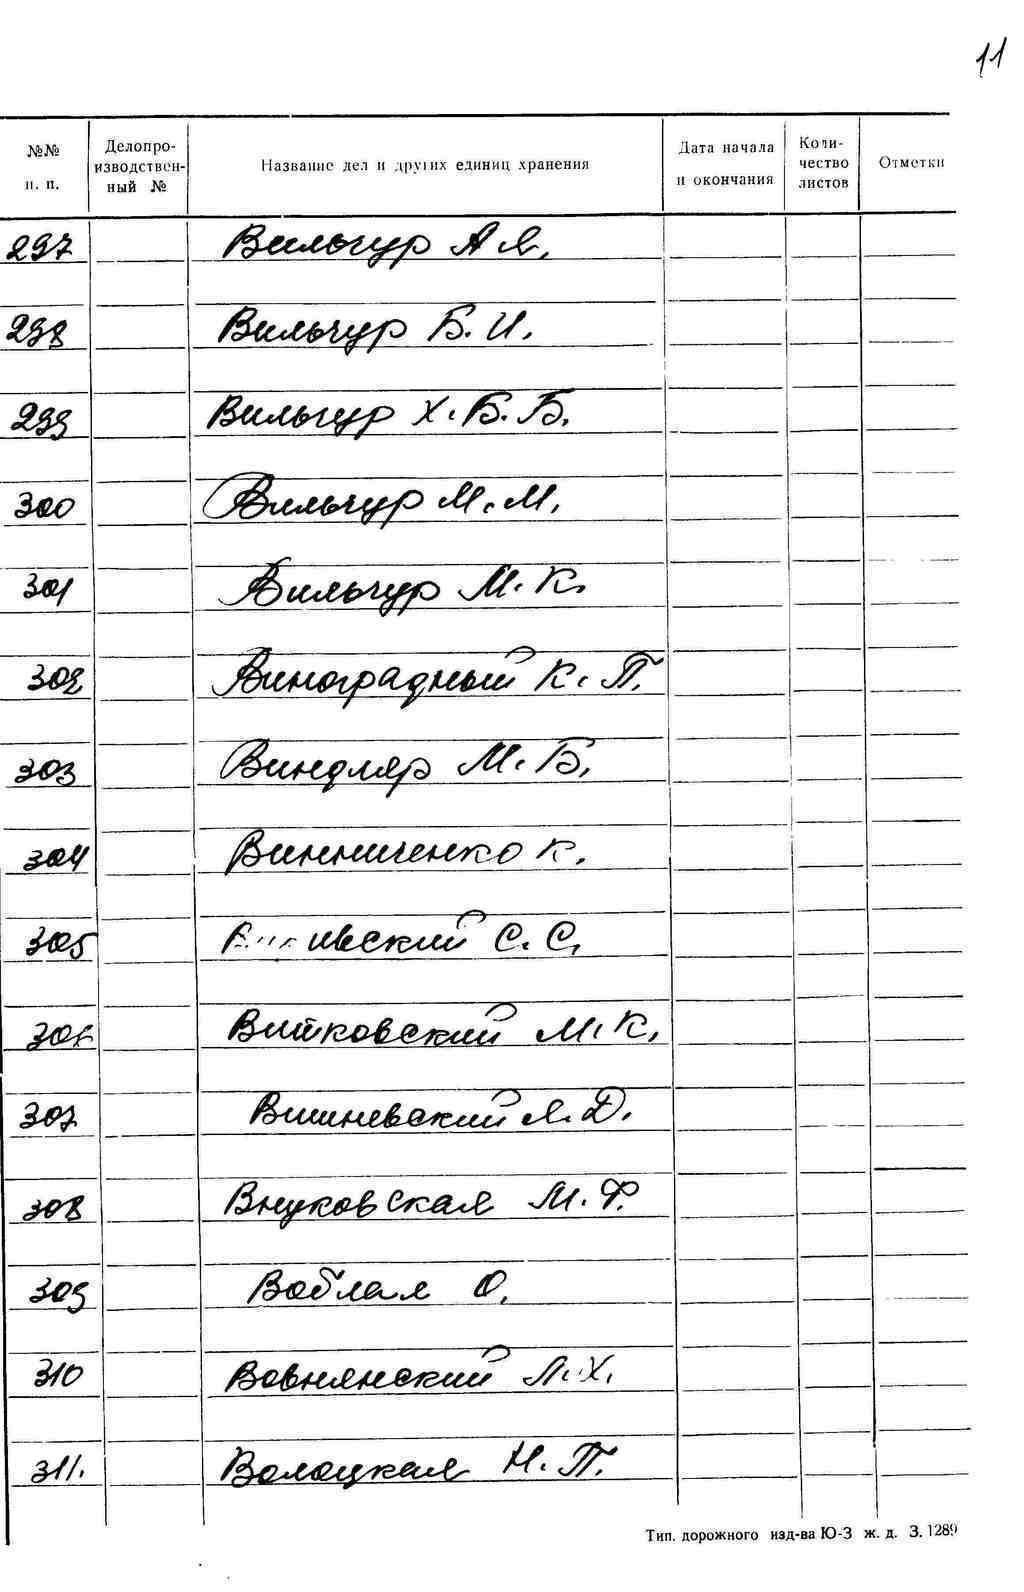 11
№№ п. п. Делопроизводственный № Название дел и других единиц хранения Дата начала и окончания Количество листов Отметки
297 Вильчур А Я.
298 Вильчур Б. И.
299 Вильчур Х. Б. Б.
300 Вильчур М. М.
301 Вильчур М. К.
302 Виноградный К. П.
303 Виндляр М. Б.
304 Винниченко К.
305 С. С.
306 Витковский М. К.
307 Вишневский Я. Д.
308 Внуковская М. Ф.
309 Воблая О.
310 Вовнянский Л. Х.
311. Волоцкая Н. П.
Тип. дорожного изд-ва Ю-З ж. д. З. 1289